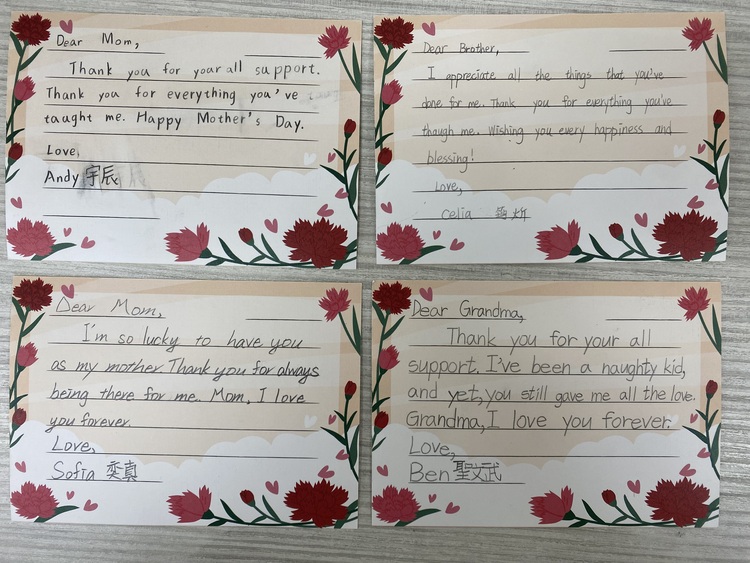 Dear Mom,
Thank you for your all support.
Thank you for everything you've
taught me. Happy Mother's Day.
Love,
Andy 宇辰
Dear Brother,
I appreciate all the things that you've
done for me. Thank you for everything you've
though me. Wishing you every happiness and
blessing!
Love,
Celia
Dear Mom,
I'm so lucky to have you
as my mother. Thank you for always
being there for me. Mom, I love
you forever.
Love,
Sofia 奕真
Dear Grandma,
Thank you for your all
support. I've been a naughty kid,
and yet, you still gave me all the love.
Grandma, I love you forever.
Love,
Ben 聖文武